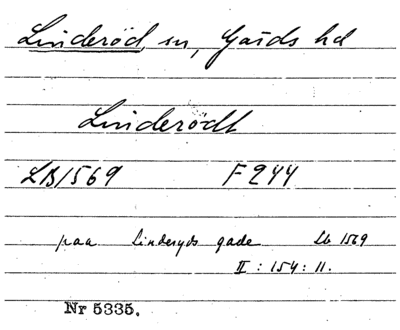 Linderöd sn, Gärds hd
Linderödt
LB 1569 F 244
paa Linderyds gade Lb 1569
II : 154 : 11.
Nr 5335.